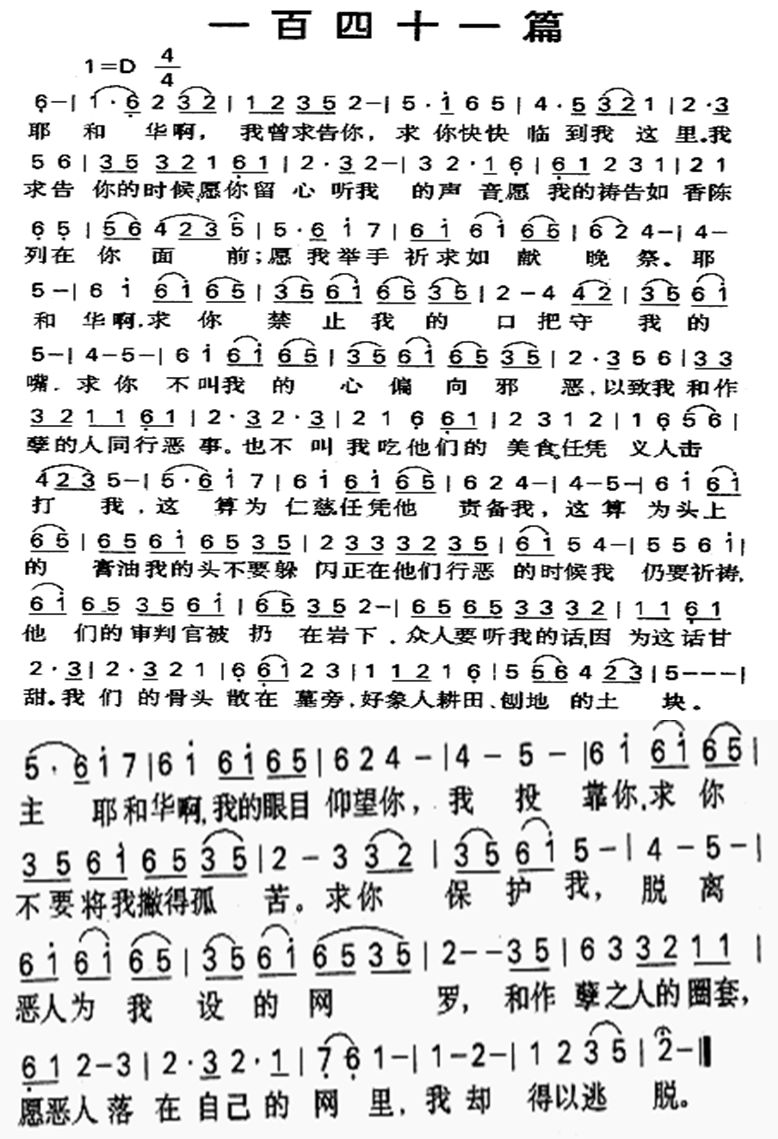 一百四十一篇
1=D 4/4
6-|1·6 2 32|12 35 2-|5·i 6 5|4·5 32 1|2·3
耶 和 华啊, 我曾求告你, 求 你快快 临 到我 这 里.我
5 6|35 321 61|2·32-|32·16|61231|21
求告 你的时候,愿你留 心 听我 的声 音,愿 我的祷告如 香陈
65|56 423 5|5·6 i 7|6i 6i 65|6 2 4-|4-
列在 你 面 前;愿 我 举手 祈求如 献 晚 祭。耶
5-|6 i 6i 65|35 6i 65 35|2-4 42|35 6i
和 华啊.求 你 禁 止 我 的 口 把守 我 的
5-|4-5-|6 i 6i 65|35 6i 65 35|2·356|33
嘴. 求 你 不叫我 的 心 偏 向 邪 恶,以致我 和作
3211 61|2·32·3|216 61|2312|1656|
孽的人同行恶 事。也不 叫 我 吃他们的 美食,任凭 义人击
423 5-|5·6 i 7|6i 6i 65|624-|4-5-|6 i 6i
打 我.这 算为 仁慈任凭他 责备我,这算 为头上
65|65 6i 65 35|2 33 32 35|6i 5 4-|5 5 6 i|
的 膏油我的头不要躲 闪正在他们行恶 的时候我 仍要祈祷,
6i 65 35 6i|65 35 2-|65 65 33 32|11 61
他 们的审判官被 扔 在岩下.众人要听我的话,因 为这话甘
2·3|2·321|66123|11216|55642 3|5---|
甜。我 们 的骨头 散在 墓旁,好象人耕田、刨地 的土 块。
5·6 i 7|6i 6i 65|624-|4-5-|6 i 6i 65|
主 耶和华啊,我的眼目 仰望你,我 投 靠你,求 你
35 6i 65 35|2-3 32|35 6i 5-|4-5-|
不要将我撇得孤 苦。求你 保 护 我,脱 离
6i 6i 65|35 6i 65 35|2--35|63 32 11|
恶人为 我 设 的 网 罗,和作 孽之人的圈套,
61 2-3|2·32·1|76 1-|1-2-|1 2 35|2-‖
愿恶人 落 在 自己 的 网 里,我 却 得以逃 脱。